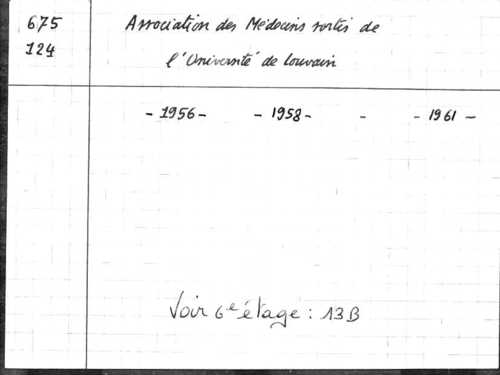 675
124
Association des Médecins sortis de
l'Université de Louvain
- 1956 - - 1958 - - - 1961 -
Voir 6e étage : 13B